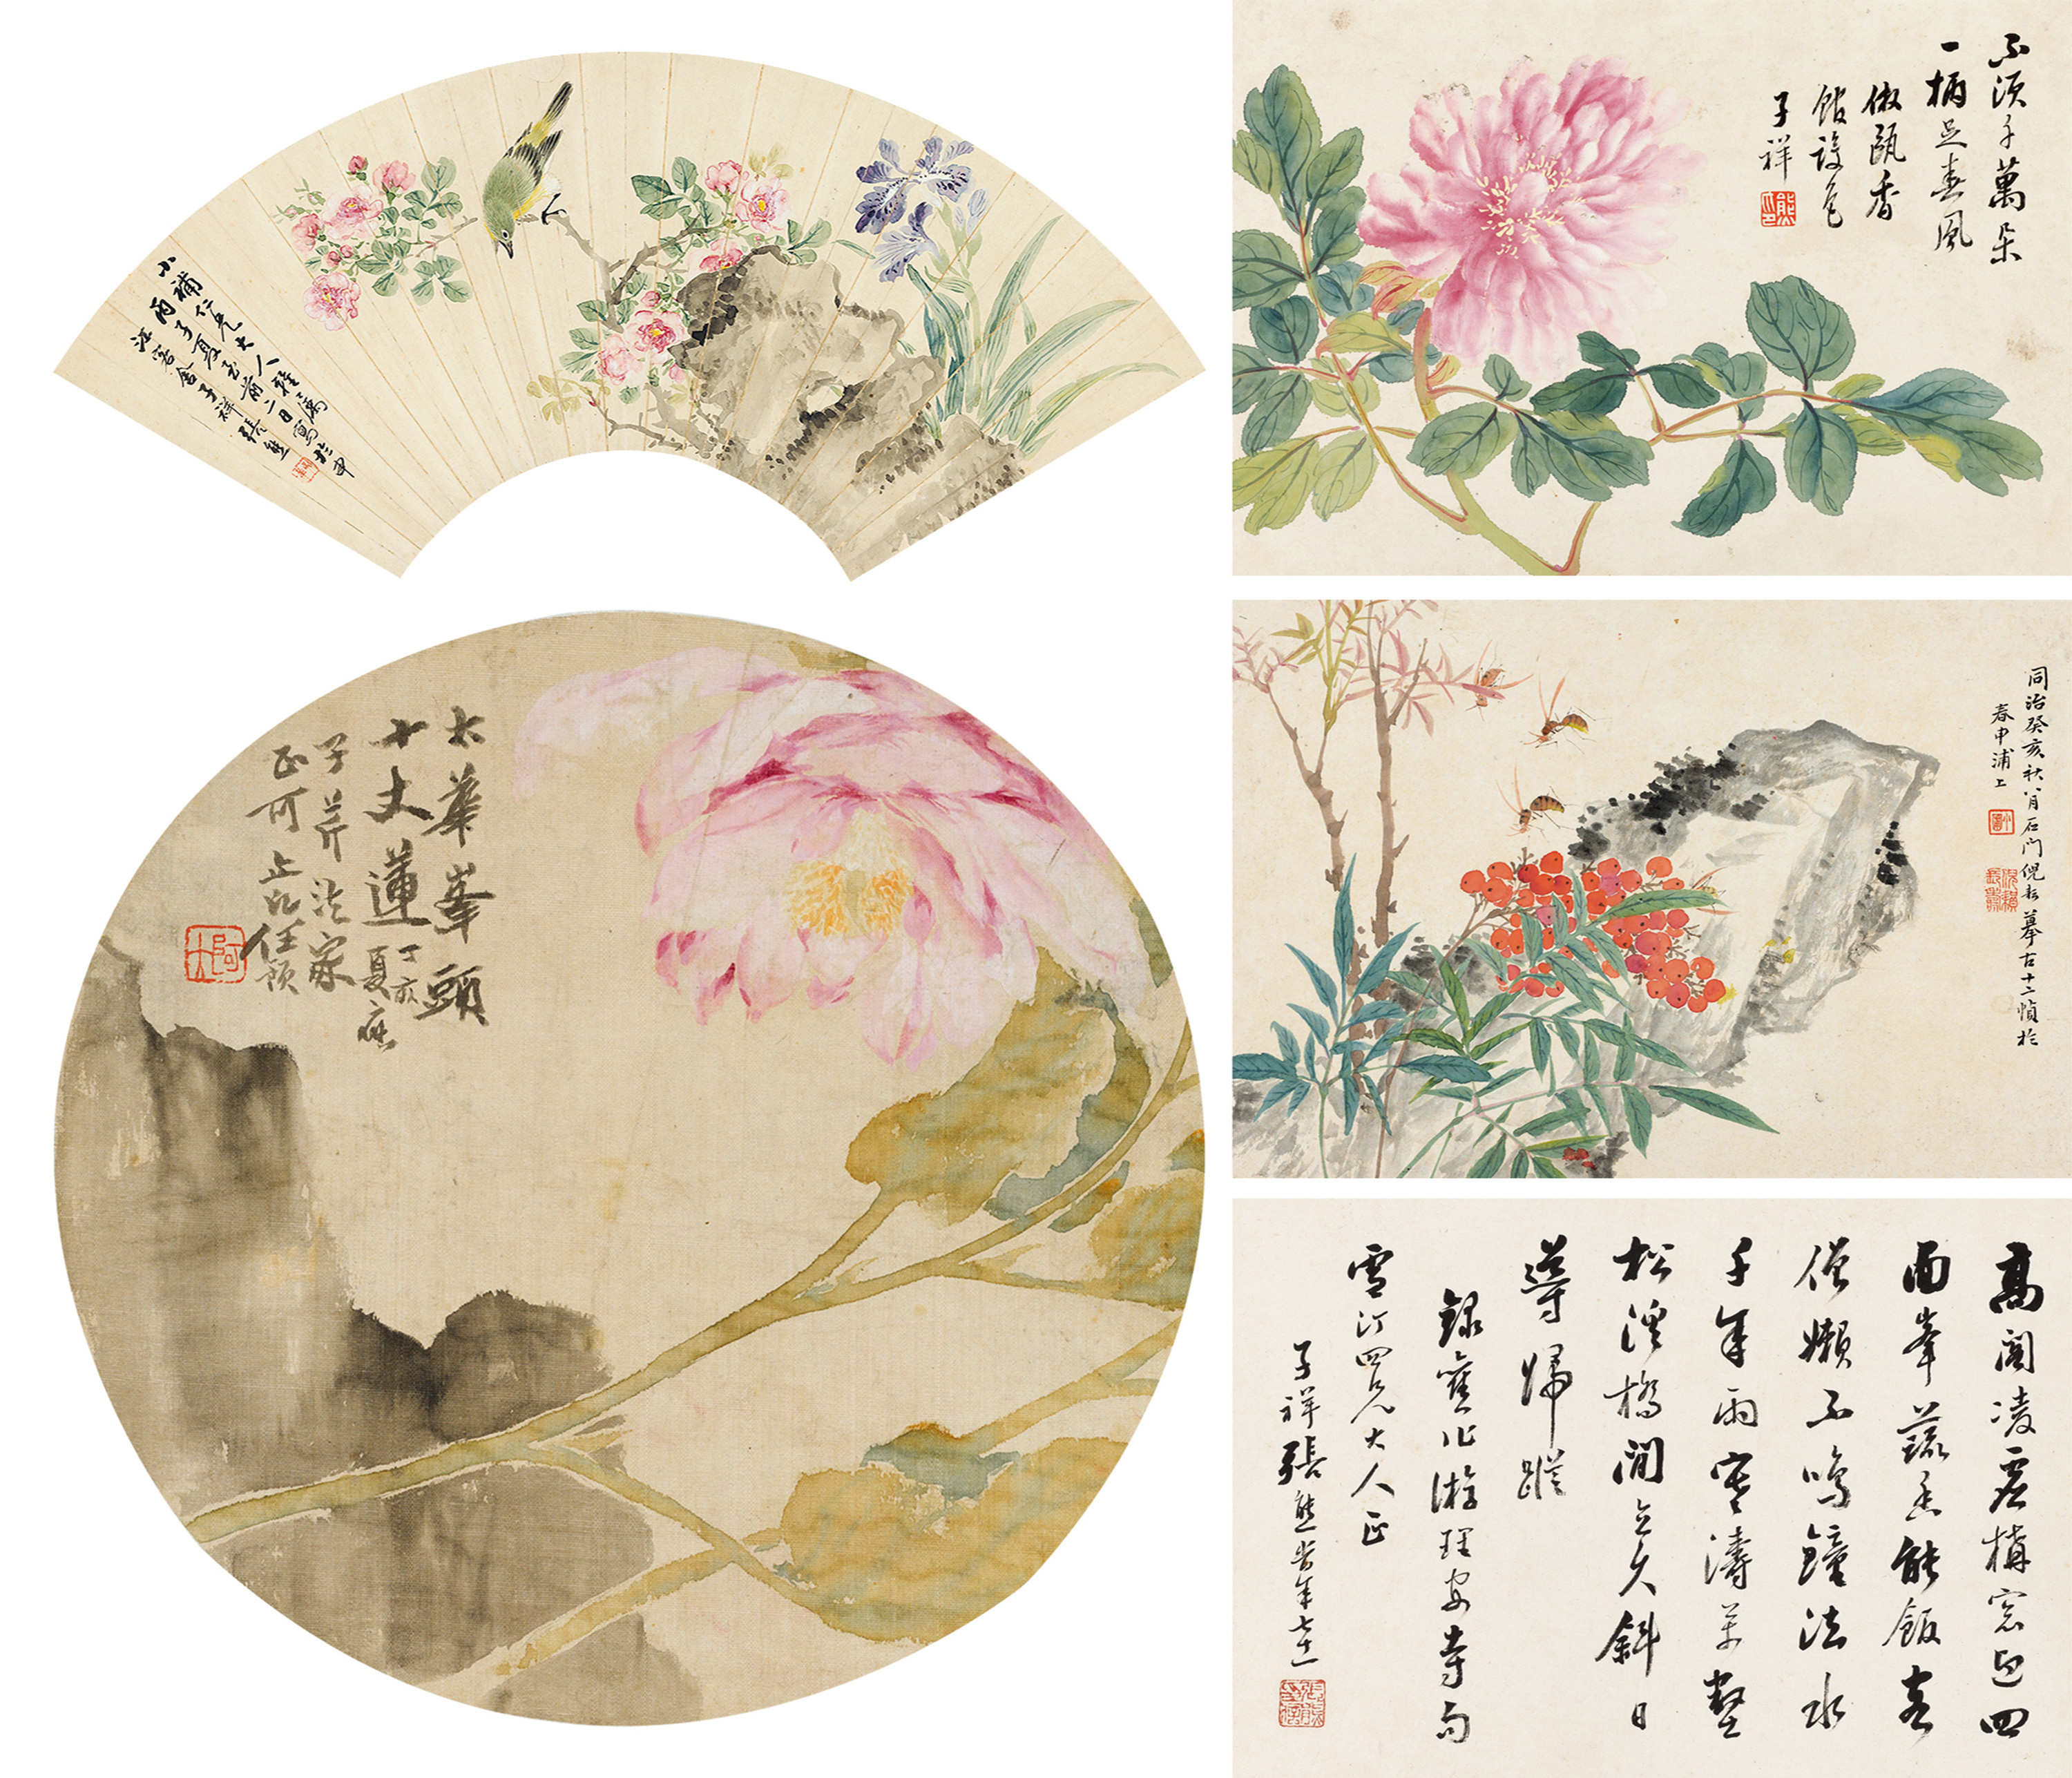 補仁兄大人雅属
丙子夏至前二日寫於申
江客舍子祥張熊
不須千萬朶
一柄足春風
倣甌香
館設色
子祥
太華峯頭
十丈蓮
丁亥
夏
子芹法家
正可
任頤
同治癸亥秋八月石門倪耘摹古十二幀於
春申浦上
高閣凌虛構窓迎四
面峯蔬香能飯客
僧嬾不鳴鐘法水
千年雨寒濤萬壑
松溪橋閒立久斜日
導歸蹤
録舊作游理安寺句
雪汀四兄大人正
子祥張熊時年七十一